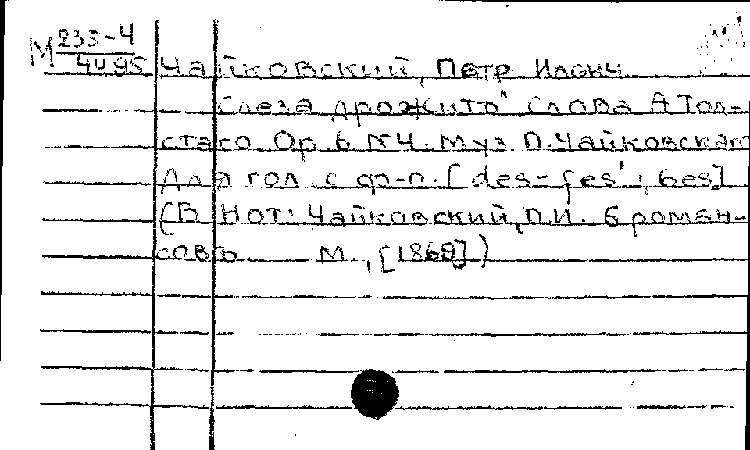 М 233-4
4095
Чайковский, Петр Ильич
Слеза дрожитъ" Слова А Тол-
стого. Ор. 6 №4. Муз П. Чайковского
Для гол. с ф-п. [des-fes²; Ges]
(В нот: Чайковский, П.И. 6 роман-
совъ М., [1869])